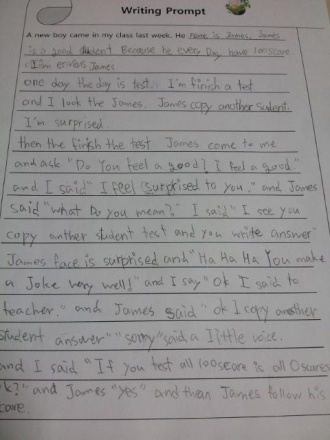 Writing Prompt
A new boy came in my class last week. He name is James. James
is a good student Because he every Day have 100score.
I'm envious James.
one day the day is test. I'm finish a test
and I look the James. James copy another student.
I'm surprised
then the finish the test James come to me
and ask "Do You feel a good? I feel a good."
and I said "I feel surprised to you." and James
said "what Do you mean?" I said "I see you
copy anther student test and you write answer"
James face is surprised and "Ha Ha Ha You make
a Joke very well!" and I say "ok I said to
teacher." and James said "ok I copy another
student answer" "sorry" said a little voice.
and I said "If you test all 100score is all 0score
ok?" and James "yes" and then James follow his
score.